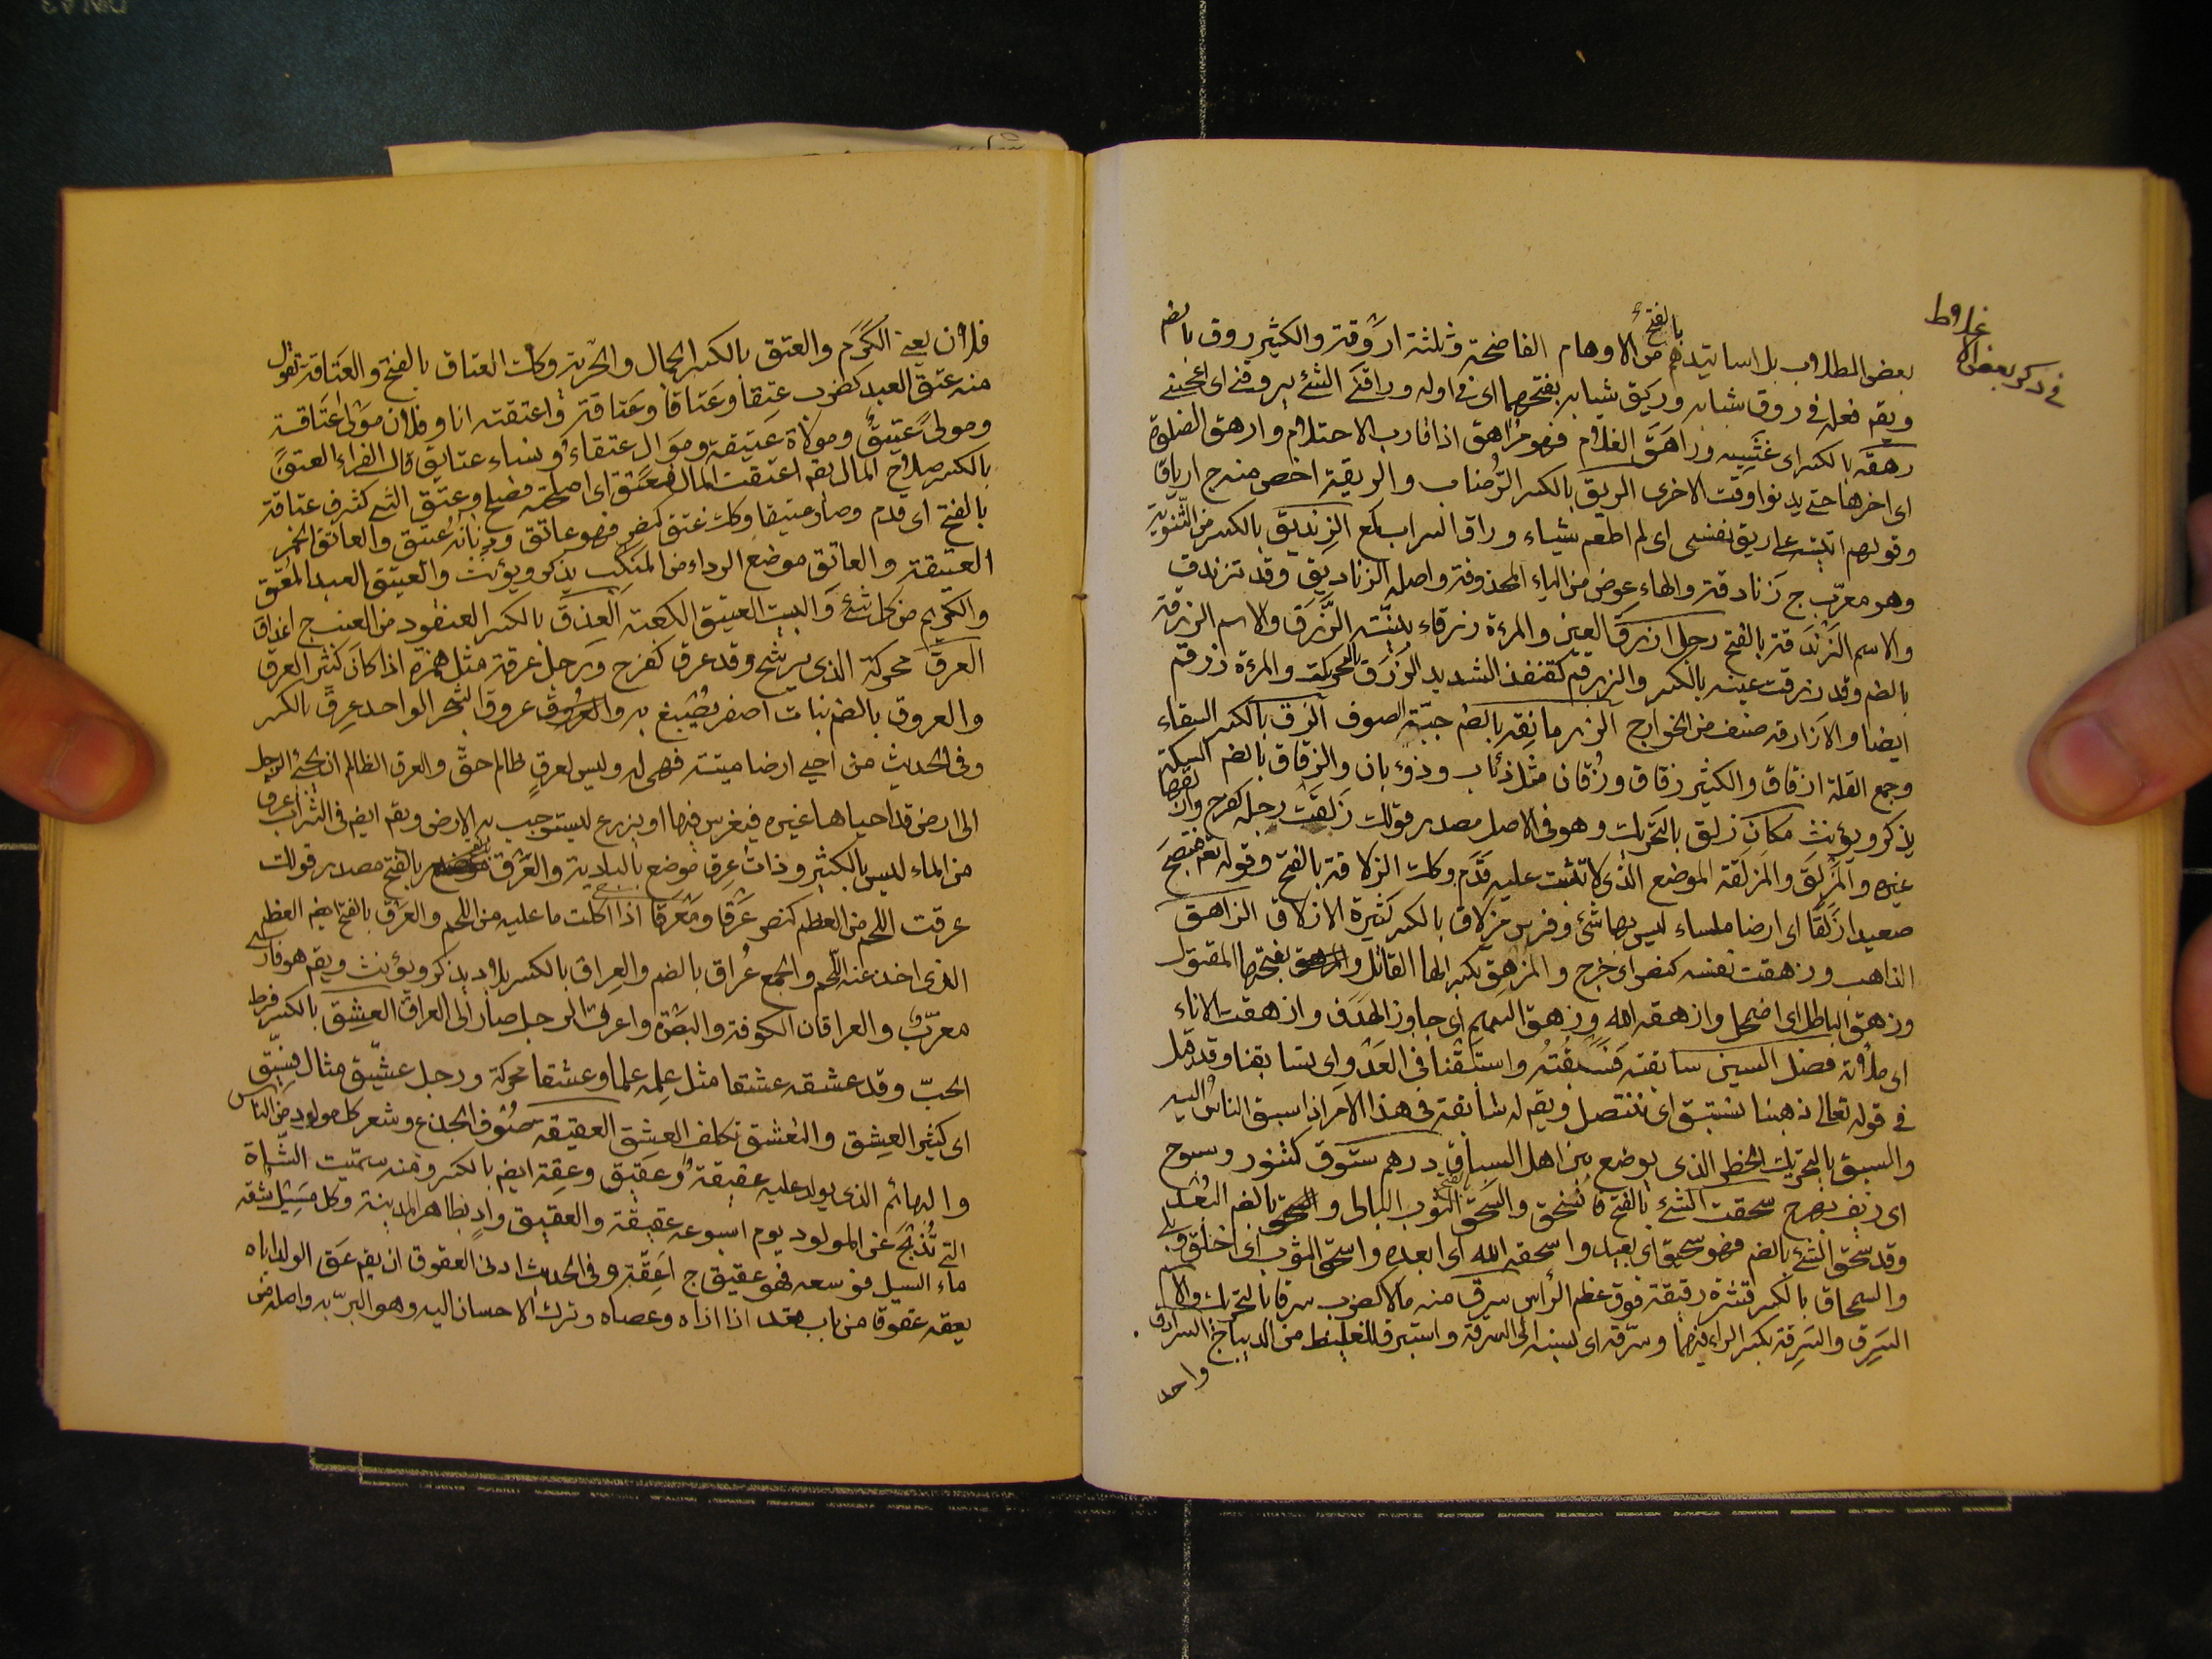 في ذكر بعض الاغلاوط
بعض الطلاب بل اساتيذهم من الاوهام الفاضحة وثلثة اروقة والكثير روق بالضم
بالفتح
ويقم فعله في روق شبابه وريق شبابه بفتحهما اى في اوله وراقنى الشئ يروقنى اى اعجبنى
رهقه بالكسر اى غشيه وراهق الغلام فهو مراهق اذا قارب الاحتلام وارهق الصلوة
اى اخرها حتى يدنوا وقت الاخرى الريق بالكسر الرضاب والريقة اخص منه ج ارياق
وقولهم اتيته على ريق نفسى اى لم اطعم شياء وراق السراب لمع الزنديق بالكسر من الثنوية
وهو معرب ج زنادقة والهاء عوض من الياء المحذوفة واصله الزناديق وقد تزندق
والاسم الزندقة بالفتح رجل ازرق العين والمرءة زرقاء بينة الزرق والاسم الزرقة
بالضم وقد زرقت عينه بالكسر والزرقم كقنفذ الشديد الزرق بالتحريك والمرءة زرقم
ايضا والازارقة صنف من الخوارج الزرمانقة بالضم جبة الصوف الزق بالكسر السقاء
وجمع القلة ازقاق والكثير زقاق وزقان مثل ذئاب وذؤبان والزقاق بالضم السكة
يذكر ويؤنث مكان زلق بالتحريك وهو فى الاصل مصدر قولك زلقت رجله كفرح وازلقها
غيره والمزلق والمزلقة الموضع الذى لا تثبت عليه قدم وكك الزلاقة بالفتح وقوله تعم فتصبح
صعيدا زلقا اى ارضا ملساء ليس بها شئ وفرس مزلاق بالكسر كثيرة الازلاق الزاهق
الذاهب وزهقت نفسه كنصر اى خرج والمزهق بكسر الها القاتل والمزهق بفتحها المقتول
وزهق الباطل اى اضمحل وازهقه الله وزهق السهم اى جاوز الهدف وازهقت الاناء
اى ملأته فصل السين سابقته فسبقته واستبقنا فى العدو اى تسابقنا وقد قيل
فى قوله تعالى ذهبنا نستبق اى ننتضل ويقم له سابقة فى هذا الامر اذا سبق الناس اليه
والسبق بالتحريك الخطر الذى يوضع بين اهل السباق درهم ستوق كتنور وسبوح
اى زيف بهرج سحقت الشئ بالفتح فانسحق والسحق بالفتح الثوب البالى والسحق بالضم البعد
وقد سحق الشئ بالضم فهو سحيق اى بعيد واسحقه الله اى ابعده واسحق الثوب اى اخلق وبلى
والسمحاق بالكسر قشرة رقيقة فوق عظم الرأس سرق منه مالا كضرب سرقا بالتحريك والاسم
السرق والسرقة بكسر الراء فيهما وسرقه اى نسبه الى السرقة واستبرق الغليظ من الديباج السرادق
واحد
فلان يعنى الكرم والعتق بالكسر الجمال والحرية وكك العتاق بالفتح والعتاقة تقول
منه عتق العبد كضرب عتقا وعتاقا وعتاقة واعتقته انا وفلان مولى عتاقة
ومولى عتيق ومولاة عتيقة وموال عتقاء ونساء عتايق قال الفراء العتق
بالكسر صلاح المال يقم اعتقت المال فعتق اى اصلحته فصلح وعتق الشئ كشرف عتاقة
بالفتح اى قدم وصار عتيقا وكك عتق كنصر فهو عاتق ودنانير عتق والعاتق الخمر
العتيقة والعاتق موضع الرداء من المنكب يذكر ويؤنث والعتيق العبد المعتق
والكريم من كل شئ والبيت العتيق الكعبة العذق بالكسر العنقود من العنب ج اعذاق
العرق محركة الذى يرشح وقد عرق كفرح ورجل عرقة مثل همزة اذا كان كثير العرق
والعروق بالضم نبات اصفر يصبغ به والعروق عروق الشجر الواحد عرق بالكسر
وفى الحديث من احيى ارضا ميتة فهى له وليس لعرق ظالم حق والعرق الظالم ان يجئ الرجل
الى ارض قد احياها غيره فيغرس فيها او يزرع ليستوجب به الارض ويقم ايضم فى الشراب عرق
من الماء ليس بالكثير وذات عرق موضع بالبادية والعرق بالفتح مصدر قولك
عرقت اللحم من العظم كنصر عرقا ومعرقا اذا اكلت ما عليه من اللحم والعرق بالفتح ايضم العظم
الذى اخذ عنه اللحم والجمع عراق بالضم والعراق بالكسر بلاد يذكر ويؤنث ويقم هو فارسى
معرب والعراقان الكوفة والبصرة واعرق الرجل صار الى العراق العشق بالكسر فرط
الحب وقد عشقه عشقا مثل علمه علما وعشقا محركة ورجل عشيق مثال فسيق
اى كثير العشق والتعشق تكلف العشق العقيقة صوف الجذع وشعر كل مولود من الناس
والبهائم الذى يولد عليه عقيقة وعقيق وعقة ايضم بالكسر ومنه سميت الشاة
التى تذبح عن المولود يوم اسبوعه عقيقة والعقيق واد بظاهر المدينة وكل مسيل شقه
ماء السيل فوسعه فهو عقيق ج اعقة وفى الحديث ادنى العقوق ان يقم عق الولد اباه
يعقه عقوقا من باب قعد اذا اذاه وعصاه وترك الاحسان اليه وهو البر به واصله من